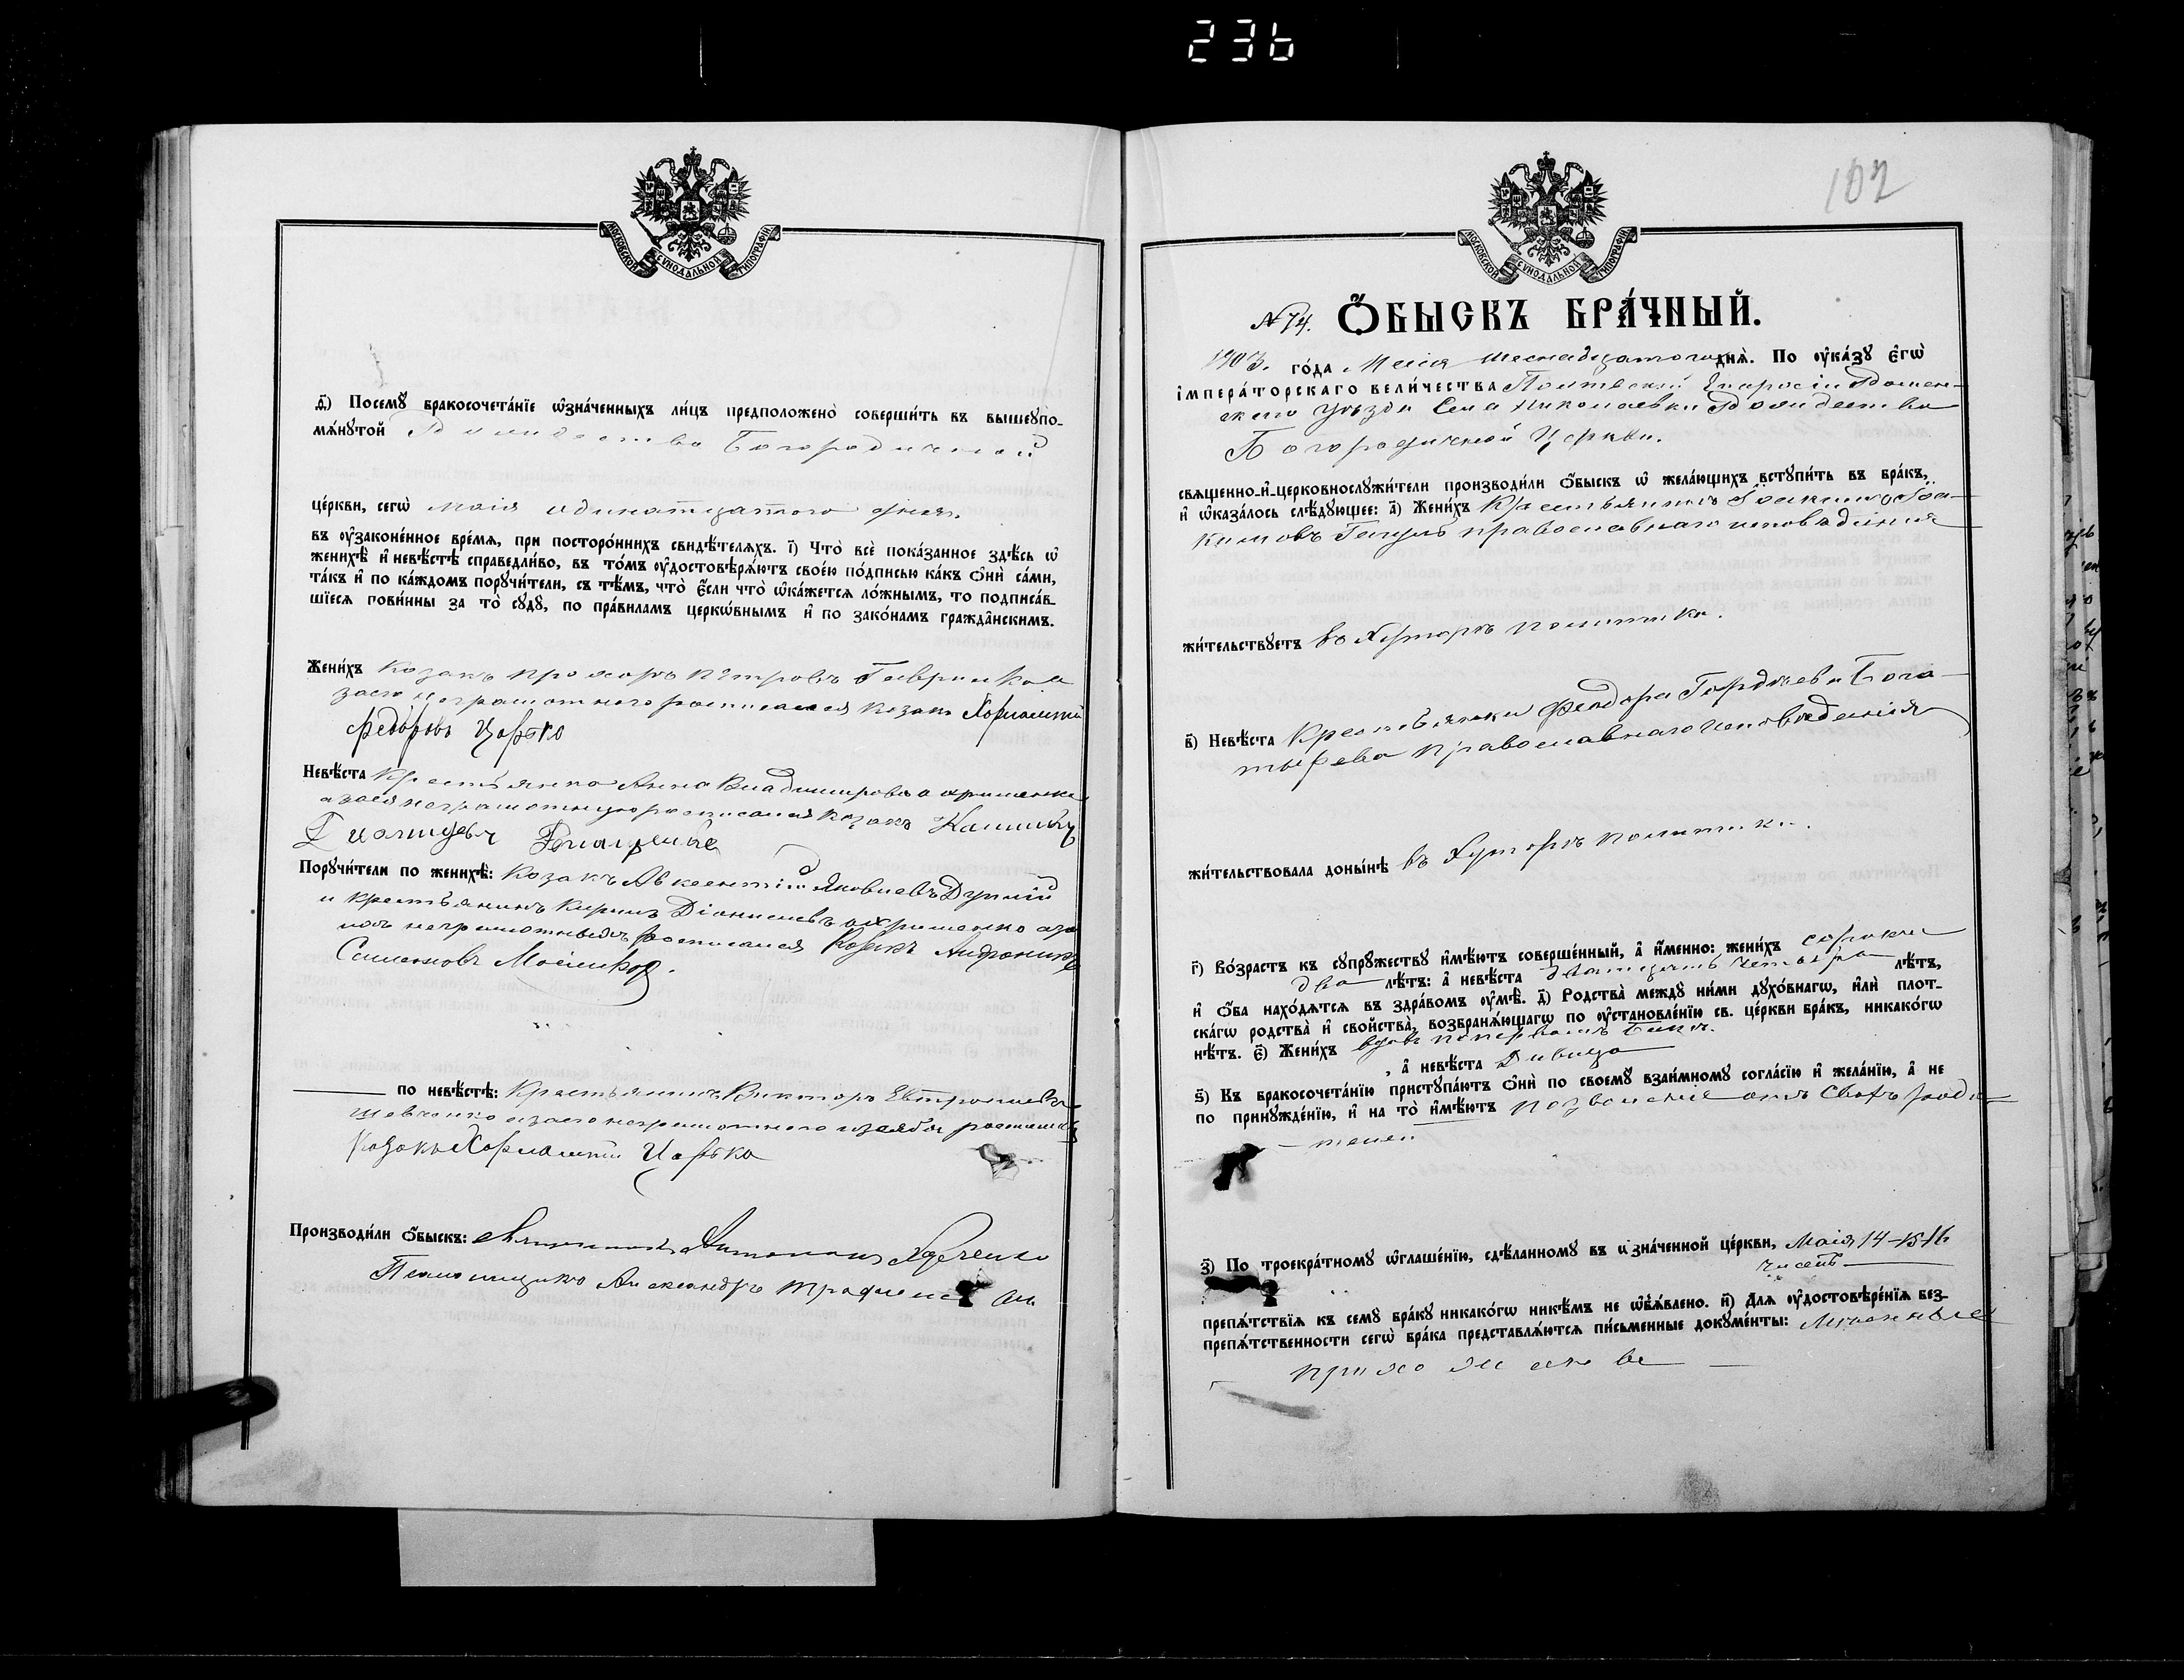 236
МОСКОВСКОЙ СѴНОДАЛЬНОЙ ТИПОГРАФІИ
ѳ҃) Посемꙋ̀ бракосочета́нїе ѡ҆зна́ченныхъ ли́цъ предположено̀ соверши́ть въ вышеꙋпо-
мѧ́нꙋтой Рождество Богородичной
це́ркви, сегѡ̀ маія одинатцатого дня.
въ ᲂу҆зако́ненное вре́мѧ, при посторо́ннихъ свидѣ́телѧхъ. і҃) Что̀ всѐ пока́занное здѣ́сь ѡ҆
женихѣ̀ и҆ невѣ́стѣ справедли́во, въ то́мъ ᲂу҆достовѣрѧ́ютъ свое́ю по́дписью ка́къ ѻ҆нѝ са́ми,
та́къ и҆ по ка́ждомъ порꙋчи́тели, съ тѣ́мъ, что̀ є҆́сли что̀ ѡ҆ка́жетсѧ ло́жнымъ, то подписа́в-
шїесѧ пови́нны за то̀ сꙋдꙋ̀, по пра́виламъ церкѡ́внымъ и҆ по зако́намъ гражда̑нскимъ.
Жени́хъ Козакъ Прохоръ Петровъ Гаврилко а
заего неграмотного росписался козакъ Харлампій
Федоровъ Царько
Невѣ́ста Крестьянка Анна Владимирова Охрименко
азаея неграмотную росписался козакъ
Порꙋчи́тели по женихѣ̀: Козакъ Авксентій Яковлевъ Дуплій
и крестьянинъ Кирилъ Діонисиевъ Охрименко аза
нихъ неграмотныхъ росписался Козакъ Андроникъ
Семеновъ
по невѣ́стѣ: Крестьянинъ Викторъ
Шевченко азаего неграмотного изасебя росписался
Козакъ Харлампій Царько
Производи́ли ѻ҆́быскъ: Священникъ Антоній
Псаломщикъ Александръ
102
МОСКОВСКОЙ СѴНОДАЛЬНОЙ ТИПОГРАФІИ
№ 74. Ѻ҆́БЫСКЪ БРА́ЧНЫЙ.
1903. го́да Маія шеснадцатого днѧ̀. По ᲂу҆ка́зꙋ є҆гѡ̀
і҆мпера́торскаго вели́чества Полтавской Епархіи Роменс-
кого уѣзда Села Николаевки Рождество
Богородичной Церкви.
свѧщенно-и҆-церковнослꙋжи́тели производи́ли ѻ҆́быскъ ѡ҆ жела́ющихъ встꙋпи́ть въ бра́къ,
и҆ ѡ҆каза́лось слѣ́дꙋющее: а҃) Жени́хъ Крестьянинъ Іоакимъ Іоа-
кимовъ православнаго исповѣданія
жи́тельствꙋетъ въ Хуторѣ
в҃) Невѣ́ста Крестьянка Феодора Гордѣева Бога-
тырева православнаго исповѣданія
жи́тельствовала доны́нѣ въ Хуторѣ
г҃) Во́зрастъ къ сꙋпрꙋ́жествꙋ и҆мѣ́ютъ соверше́нный, а҆ и҆́менно: жени́хъ сорокъ
два лѣ́тъ: а҆ невѣ́ста двадцать четыре лѣ́тъ,
и҆ ѻ҆́ба нахо́дѧтсѧ въ здра́вомъ ᲂу҆мѣ̀. д҃) Родства̀ междꙋ̀ ни́ми дꙋхо́внагѡ, и҆лѝ плот-
ска́гѡ родства̀ и҆ сво́йства̀, возбранѧ́ющагѡ по ᲂу҆становле́нїю св. це́ркви бра́къ, никако́гѡ
нѣ́тъ. є҃) Жени́хъ вдовъ поперьвомъ бракѣ.
, а҆ невѣ́ста Дѣвица
ѕ҃) Къ бракосочета́нїю пристꙋпа́ютъ ѻ҆нѝ по своемꙋ̀ взаи́мномꙋ согла́сїю и҆ жела́нїю, а҆ не
по принꙋжде́нїю, и҆ на то̀ и҆мѣ́ютъ позволеніе отъ своихъ роди-
телей
з҃) По троекра́тномꙋ ѡ҆глаше́нїю, сдѣ́ланномꙋ въ ѡ҆зна́ченной це́ркви, Маія 14-15-16
чиселъ
препѧ́тствїѧ къ семꙋ̀ бра́кꙋ никако́гѡ никѣ́мъ не ѡ҆б̾ѧ́влено. и҃) Длѧ ᲂу҆достовѣре́нїѧ без-
препѧ́тственности сегѡ̀ бра́ка представлѧ́ютсѧ пи́сьменные докꙋме́нты: